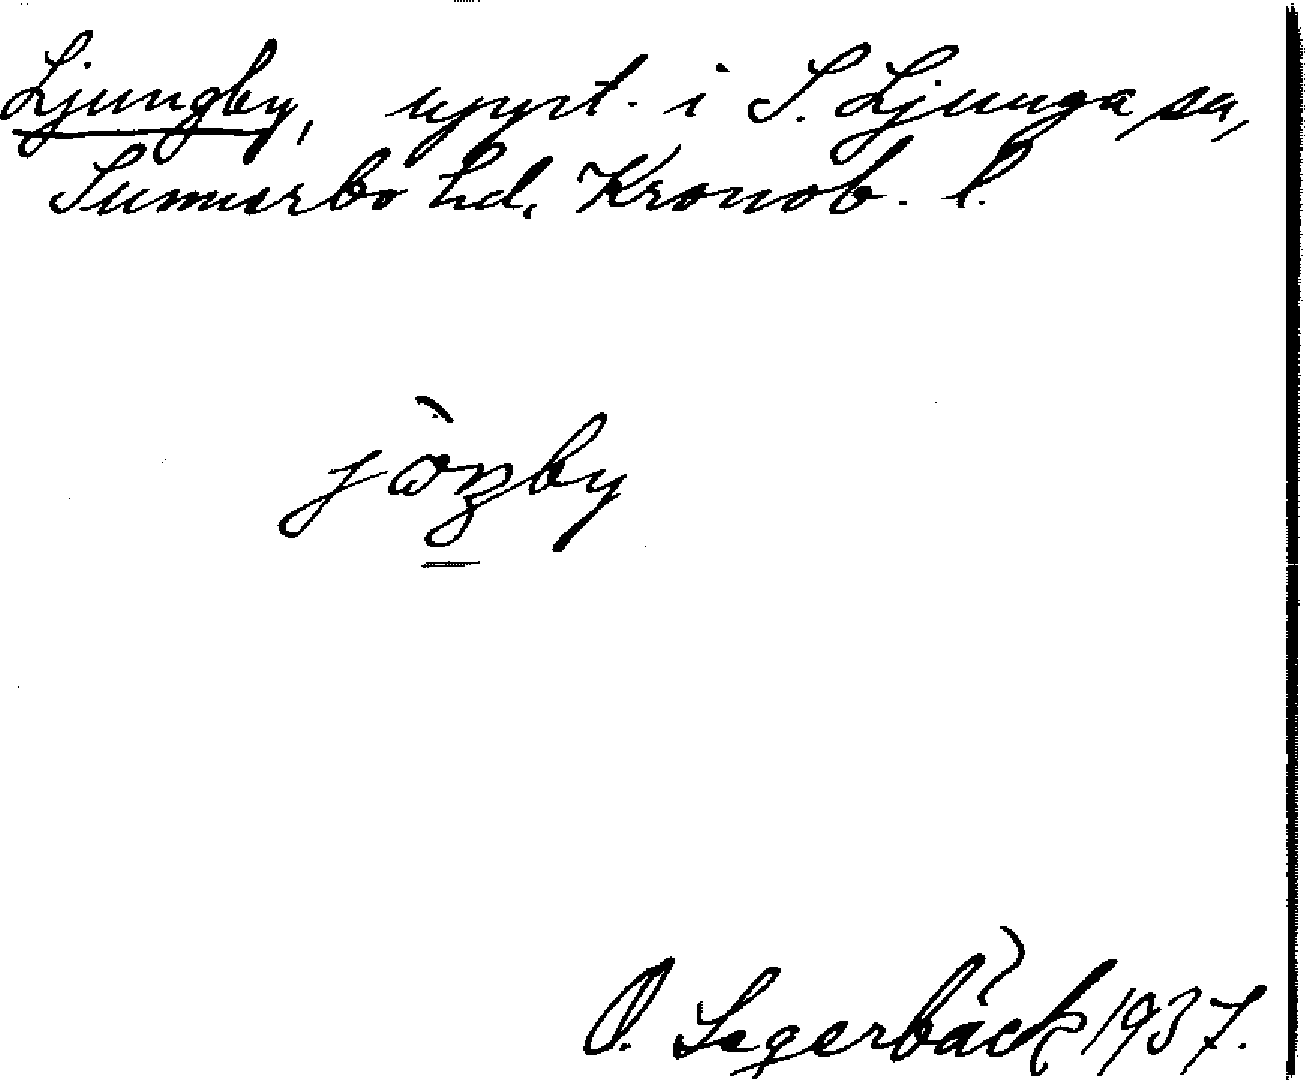 Ljungby, uppt. i S. Ljunga sn,
Sunnerbo hd, Kronob. l.
O. Segerbäck 1937.